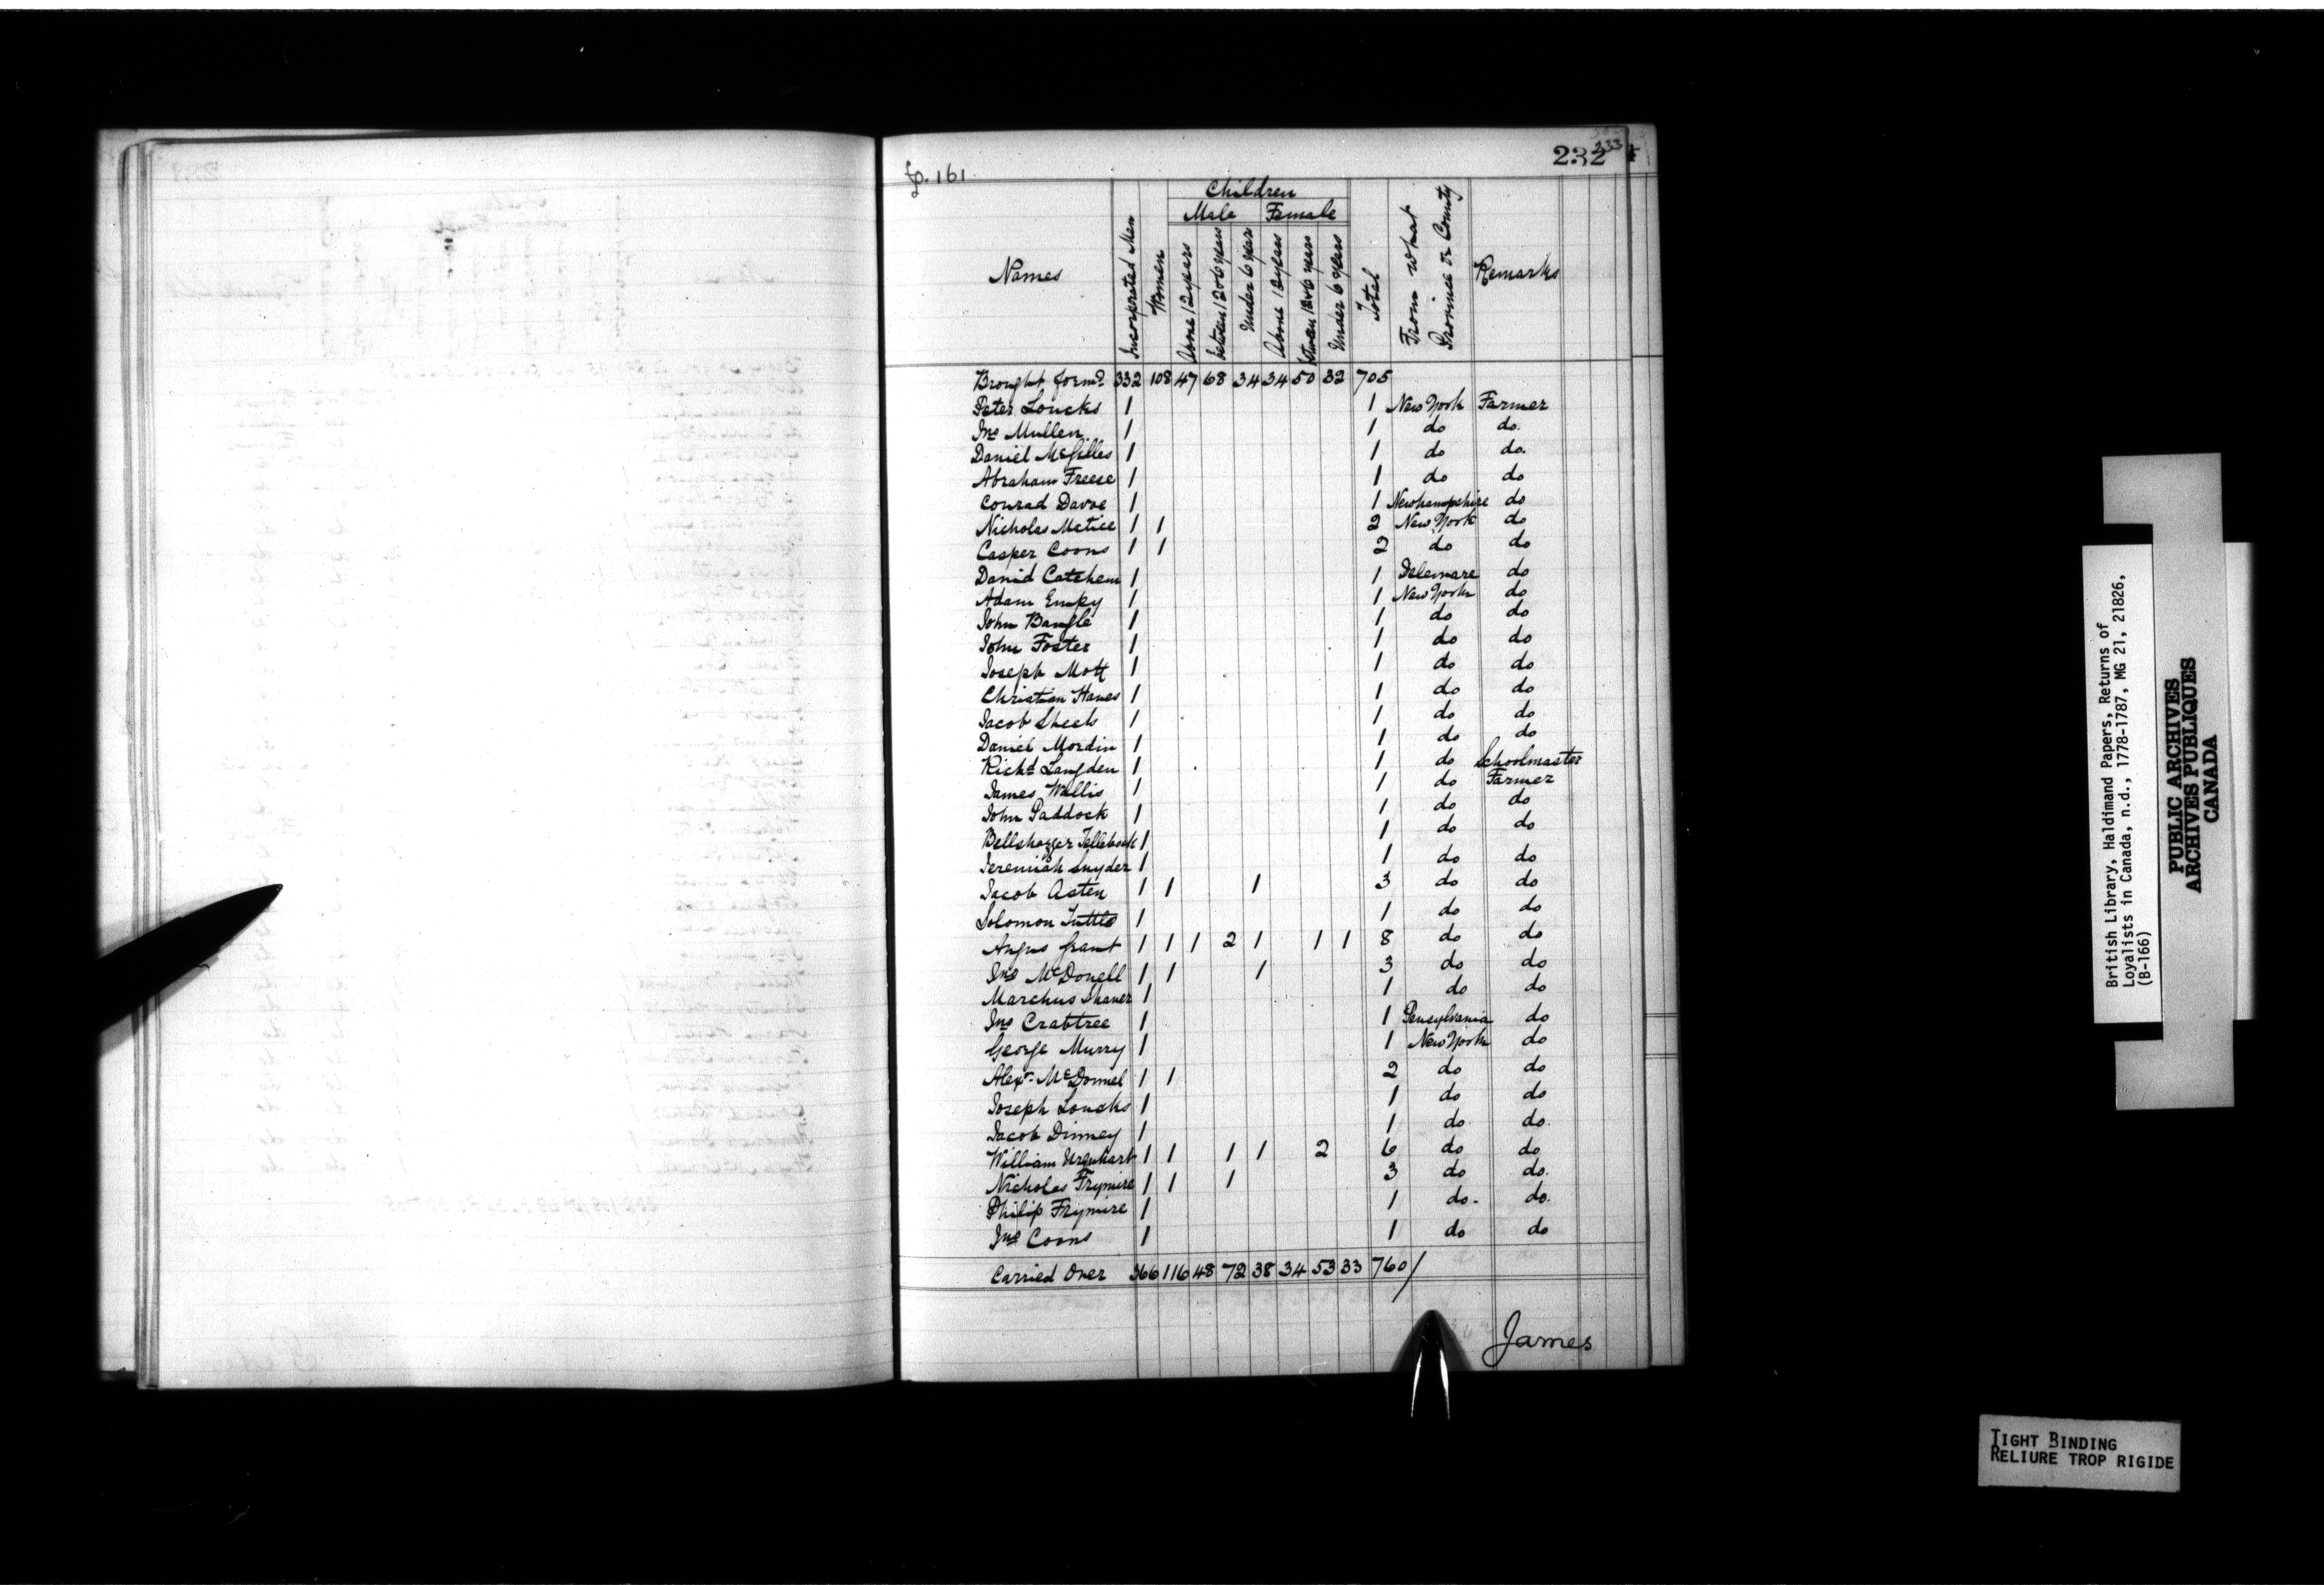 fo. 161
232 233
Children
Male Female
Names Incorporated Men Women Above 12 years between 12 & 6 years Under 6 year Above 12 years between 12 & 6 years Under 6 years Total From what Province or County Remarks
Brought forwd 332 108 47 68 34 34 50 32 705
Peter Loucks 1 1 New York Farmer
Jno Mullen 1 1 do do.
Daniel McGilles 1 1 do do.
Abraham Freese 1 1 do do
Conrad Davoe 1 1 Newhampshire do
Nicholas Matice 1 1 2 New York do
Casper Coons 1 1 2 do do
David Catchem 1 1 Delemare do
Adam Empy 1 1 New York do
John Bangle 1 1 do do
John Foster 1 1 do do
Joseph Mott 1 1 do do
Christian Hanes 1 1 do do
Jacob Sheets 1 1 do do
Daniel Mordin 1 1 do do
Richd Langden 1 1 do Schoolmaster
James Wallis 1 1 do Farmer
John Paddock 1 1 do do
Bellshazzer Tellebouk 1 1 do do
Jeremiah Snyder 1 1 do do
Jacob Asten 1 1 1 3 do do
Solomon Tuttle 1 1 do do
Angus Grant 1 1 1 2 1 1 1 8 do do
Jno McDonell 1 1 1 3 do do
Marchus Shaner 1 1 do do
Jno Crabtree 1 1 Pensylvania do
George Murry 1 1 New York do
Alexr. McDonnel 1 1 2 do do
Joseph Loucks 1 1 do do
Jacob Dinney 1 1 do do.
William Urquhart 1 1 1 1 2 6 do do
Nicholas Frymire 1 1 1 3 do do.
Philip Frymire 1 1 do. do.
Jno Coons 1 1 do do
Carried Over 366 116 48 72 38 34 53 33 760/
James
British Library, Haldimand Papers, Returns of
Loyalists in Canada, n.d., 1778-1787, MG 21, 21826,
(B-166)
PUBLIC ARCHIVES
ARCHIVES PUBLIQUES
CANADA
TIGHT BINDING
RELIURE TROP RIGIDE